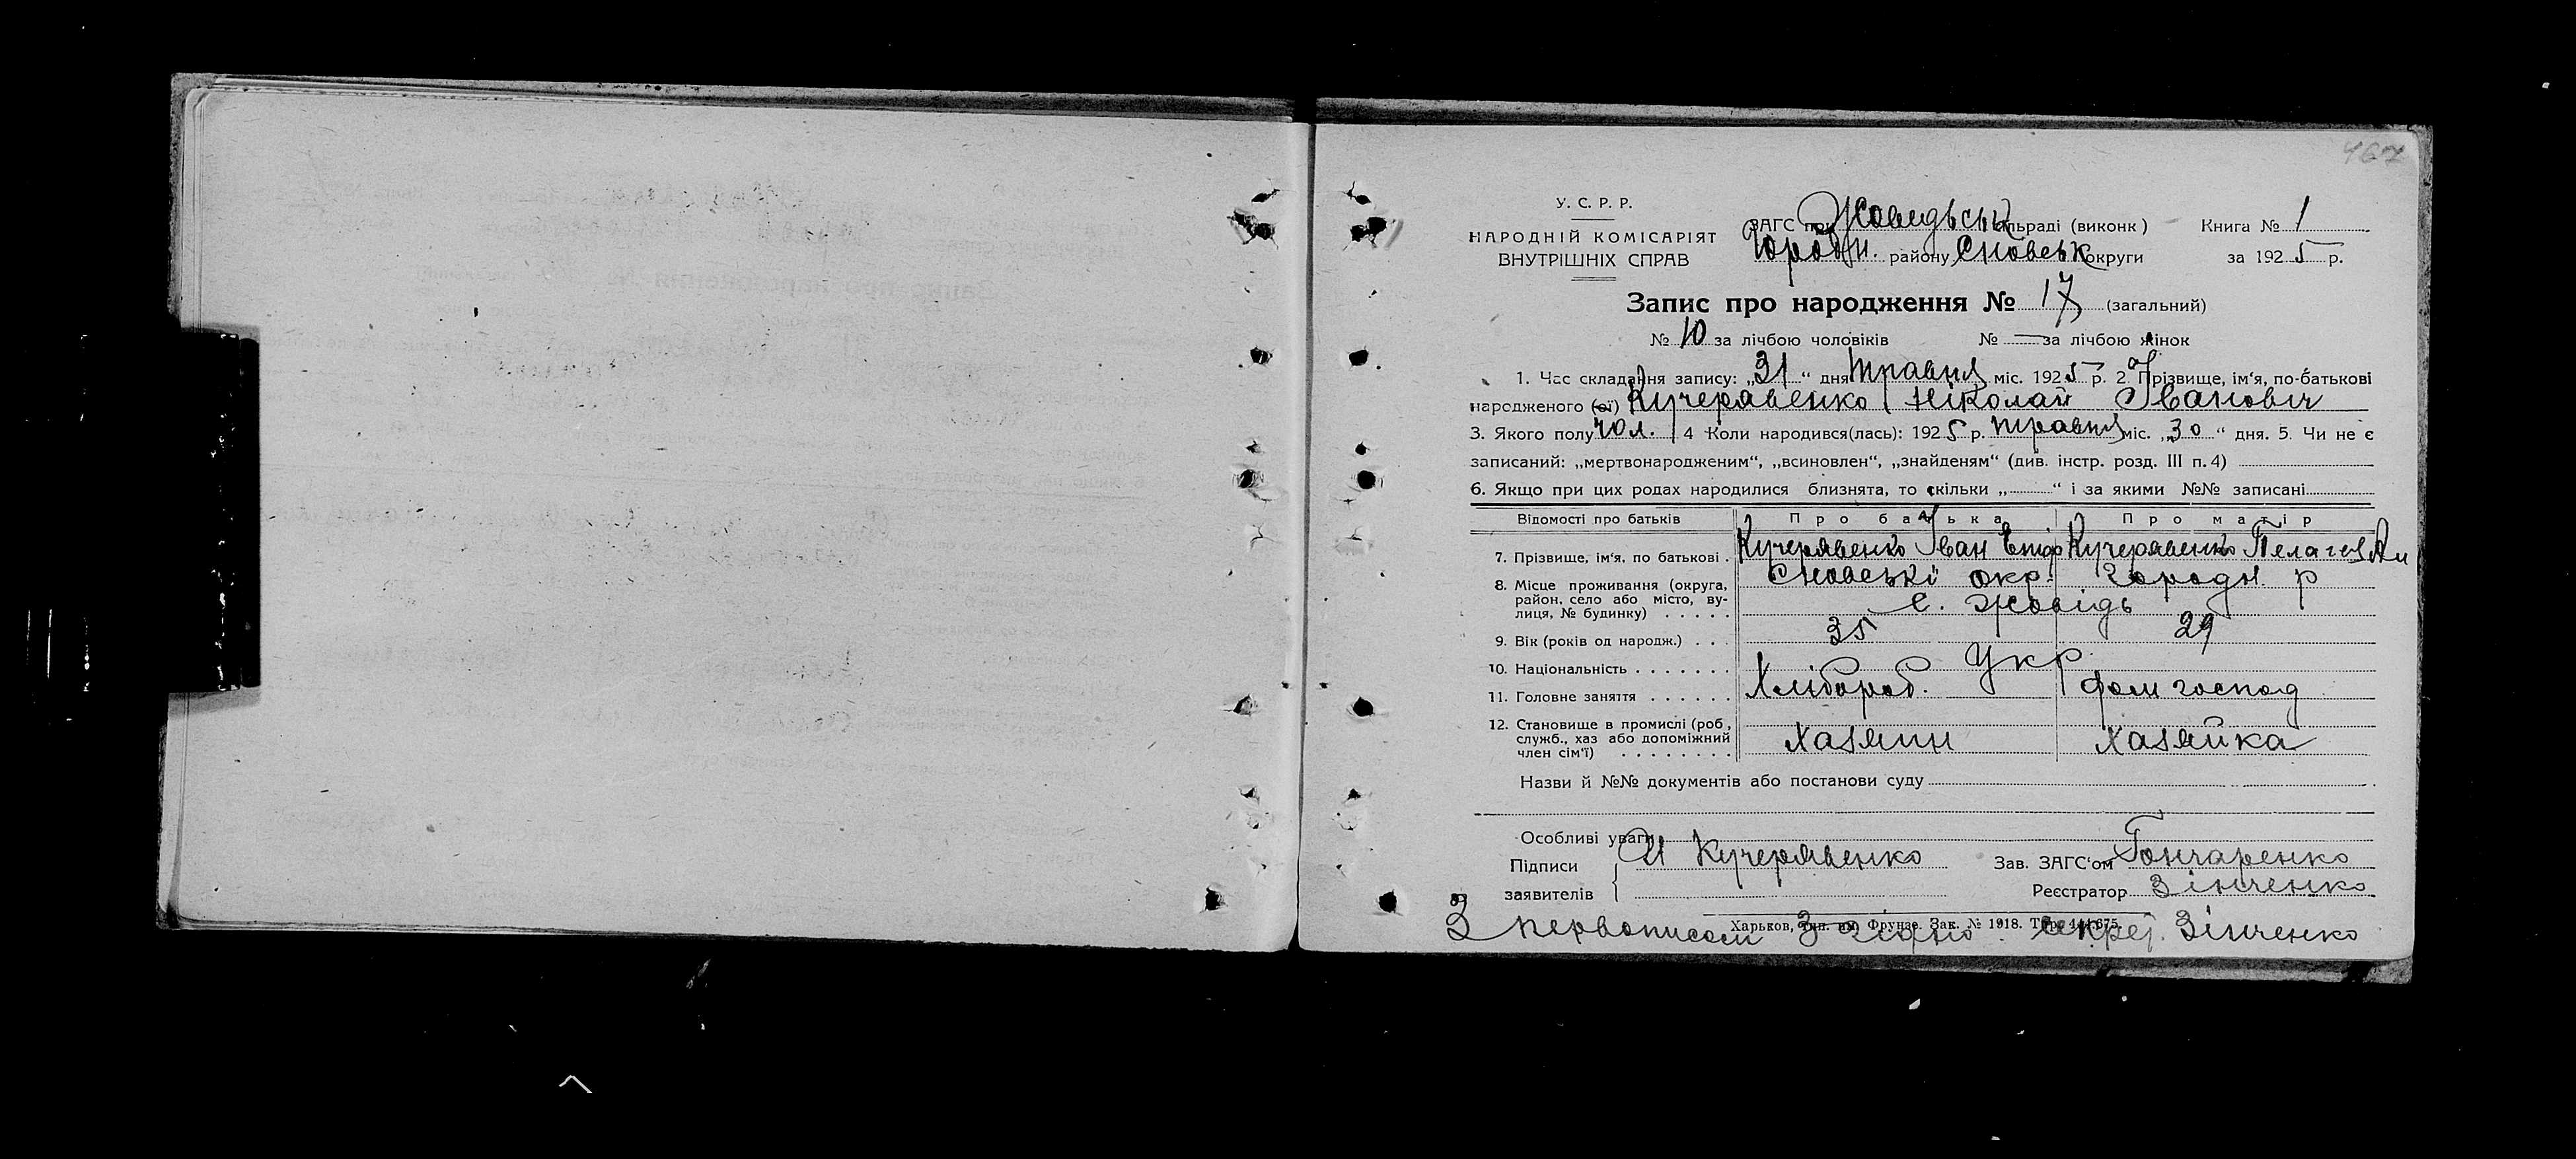 467
У. С. Р. Р.
НАРОДНІЙ КОМІСАРІЯТ
ВНУТРІШНІХ СПРАВ
ЗАГС при Жовидьськ сільраді (виконк) Книга № 1
Городн. району Сновськ округи за 1925 р.
Запис про народження № 17 (загальний)
№ 10 за лічбою чоловіків № — за лічбою жінок
1. Час складання запису: „31“ дня травня міс. 1925 р. 2. Прізвище, ім'я, по-батькові
народженого (ої) Кучерявенко Ніколай Іванович
3. Якого полу чол. 4 Коли народився(лась): 1925 р. травня міс. „30“ дня. 5. Чи не є
записаний: „мертвонародженим“, „всиновлен“, „знайденям“ (див. інстр. розд. III п. 4)
6. Якщо при цих родах народилися близнята, то скільки „ “ і за якими №№ записані
Відомості про батьків Про батька Про матір
7. Прізвище, ім'я, по батькові . Кучерявенко Іван Кучерявенко Пелагея
8. Місце проживання (округа, район, село або місто, вулиця, № будинку) . . . . . Сновські окр. городн. р
с. Жовідь
9. Вік (років од народж.) . . . 35 29
10. Національність . . . . . . . Укр.
11. Головне заняття . . . . . . Хлібороб. дом господ
12. Становище в промислі (роб, служб., хаз або допоміжний член сім'ї) . . . . . . . . Хазяин Хазяйка
Назви й №№ документів або постанови суду
Особливі уваги
Підписи И Кучерявенко Зав. ЗАГС'ом Гончаренко
заявителів Реєстратор Зінченко
Харьков, тип. им. Фрунзе. Зак. № 1918.
З первописом згідно секрет. Зінченко